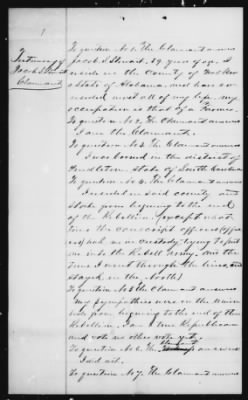 1
Testimony of
Jacob Stuart
Claimant
To question No 1. The Claimant answers
Jacob Stuart, 59 years of age, I
reside in the County of
State of Alabama, and has so
resided most all of my life, my
occupation is that of a Farmer.
To question No 2, The Claimant answers
I am the Claimant.
To question No 3 The Claimant answers
I was born in the district of
Pendleton, State of South Carolina
To question No 4. The Claimant answers
I resided in said county and
State from begining to the end
of the Rebellion, except what
time the conscript officers (officers)
had me in custody, trying to put
me into the Rebell Army, and the
time I went through the lines and
stayed in the North)
To question No 5 the Claimant answers
My sympathies were in the Union
side from begining to the end of the
Rebellion. I am a true Republican
and vote no other vote yet.
To question No 6. The Claimant answers
I did not.
To question No 7. The Claimant answers